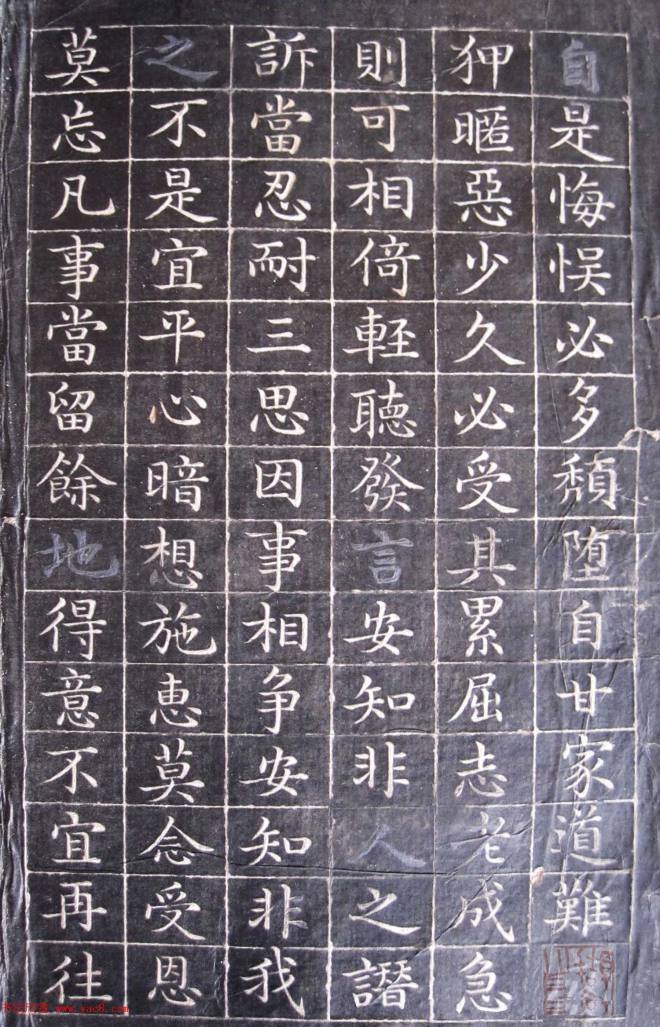 自是悔悮必多頽堕自甘家道難
狎暱惡少久必受其累屈志老成急
則可相倚軽聽發言安知非人之譖
訴當忍耐三思因事相争安知非我
之不是宜平心暗想施恵莫念受恩
莫忘凡事當留餘地得意不宜再往
www.yac8.com